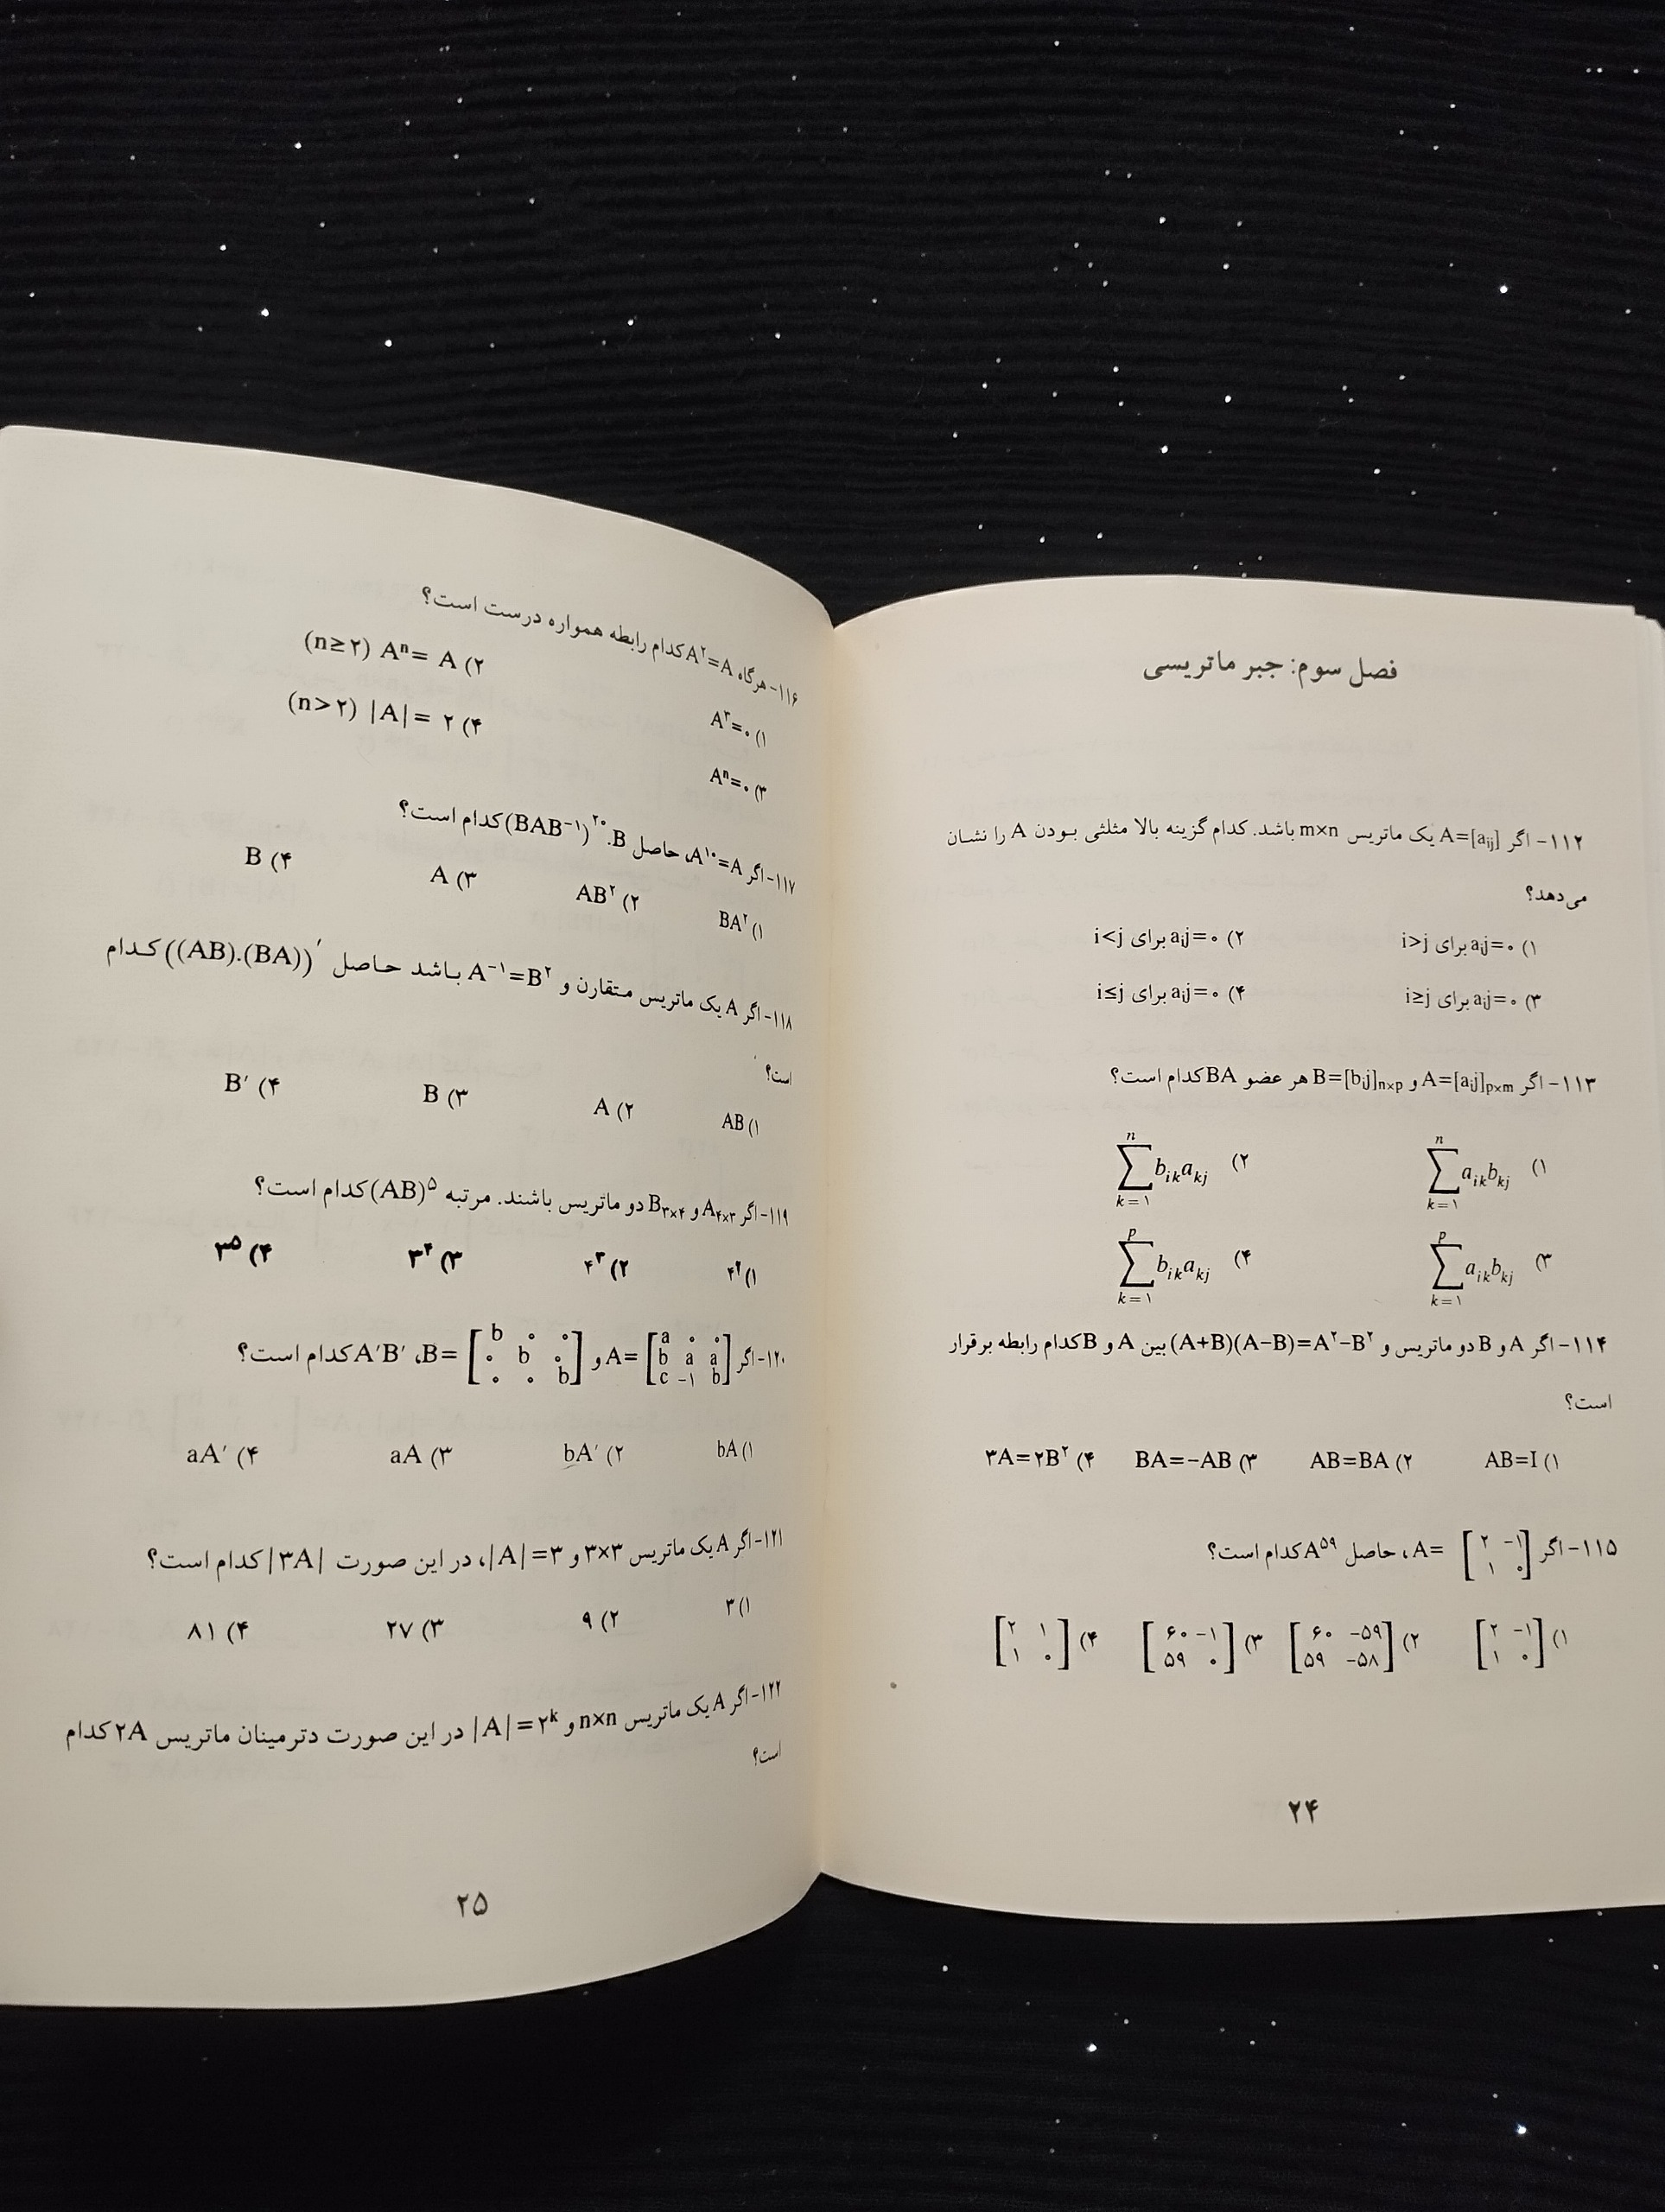 فصل سوم: جبر ماتریسی
۱۱۲- اگر A=[aij] یک ماتریس m×n باشد. کدام گزینه بالا مثلثی بودن A را نشان
می‌دهد؟
۱) aij=۰ برای i>j ۲) aij=۰ برای i<j
۳) aij=۰ برای i≥j ۴) aij=۰ برای i≤j
۱۱۳- اگر A=[aij]p×m و B=[bij]n×p هر عضو BA کدام است؟
۱) n∑k=۱ aik bkj ۲) n∑k=۱ bik akj
۳) p∑k=۱ aik bkj ۴) p∑k=۱ bik akj
۱۱۴- اگر A و B دو ماتریس و (A+B)(A−B)=A²−B² بین A و B کدام رابطه برقرار
است؟
۱) AB=I ۲) AB=BA ۳) BA=−AB ۴) ۳A=۲B²
۱۱۵- اگر A= [۲ −۱ / ۱ ۰]، حاصل A⁵⁹ کدام است؟
۱) [۲ −۱ / ۱ ۰] ۲) [۶۰ −۵۹ / ۵۹ −۵۸] ۳) [۶۰ −۱ / ۵۹ ۰] ۴) [۲ ۱ / ۱ ۰]
۲۴
۱۱۶- هرگاه A²=A کدام رابطه همواره درست است؟
۱) A³=۰ ۲) Aⁿ= A (n≥۲)
۳) Aⁿ=۰ ۴) |A|= ۲ (n>۲)
۱۱۷- اگر A¹⁰=A، حاصل (BAB⁻¹)²⁰.B کدام است؟
۱) BA² ۲) AB² ۳) A ۴) B
۱۱۸- اگر A یک ماتریس متقارن و A⁻¹=B² باشد حاصل ((AB).(BA))′ کدام
است؟
۱) AB ۲) A ۳) B ۴) B′
۱۱۹- اگر A۴×۳ و B۳×۴ دو ماتریس باشند. مرتبه (AB)⁵ کدام است؟
۱) ۴² ۲) ۴³ ۳) ۳⁴ ۴) ۳⁵
۱۲۰- اگر A= [a ۰ ۰ / b a a / c −۱ b] و B= [b ۰ ۰ / ۰ b ۰ / ۰ ۰ b]، A′B′ کدام است؟
۱) bA ۲) bA′ ۳) aA ۴) aA′
۱۲۱- اگر A یک ماتریس ۳×۳ و |A|=۳، در این صورت |۳A| کدام است؟
۱) ۳ ۲) ۹ ۳) ۲۷ ۴) ۸۱
۱۲۲- اگر A یک ماتریس n×n و |A|=۲ᵏ در این صورت دترمینان ماتریس ۲A کدام
است؟
۲۵